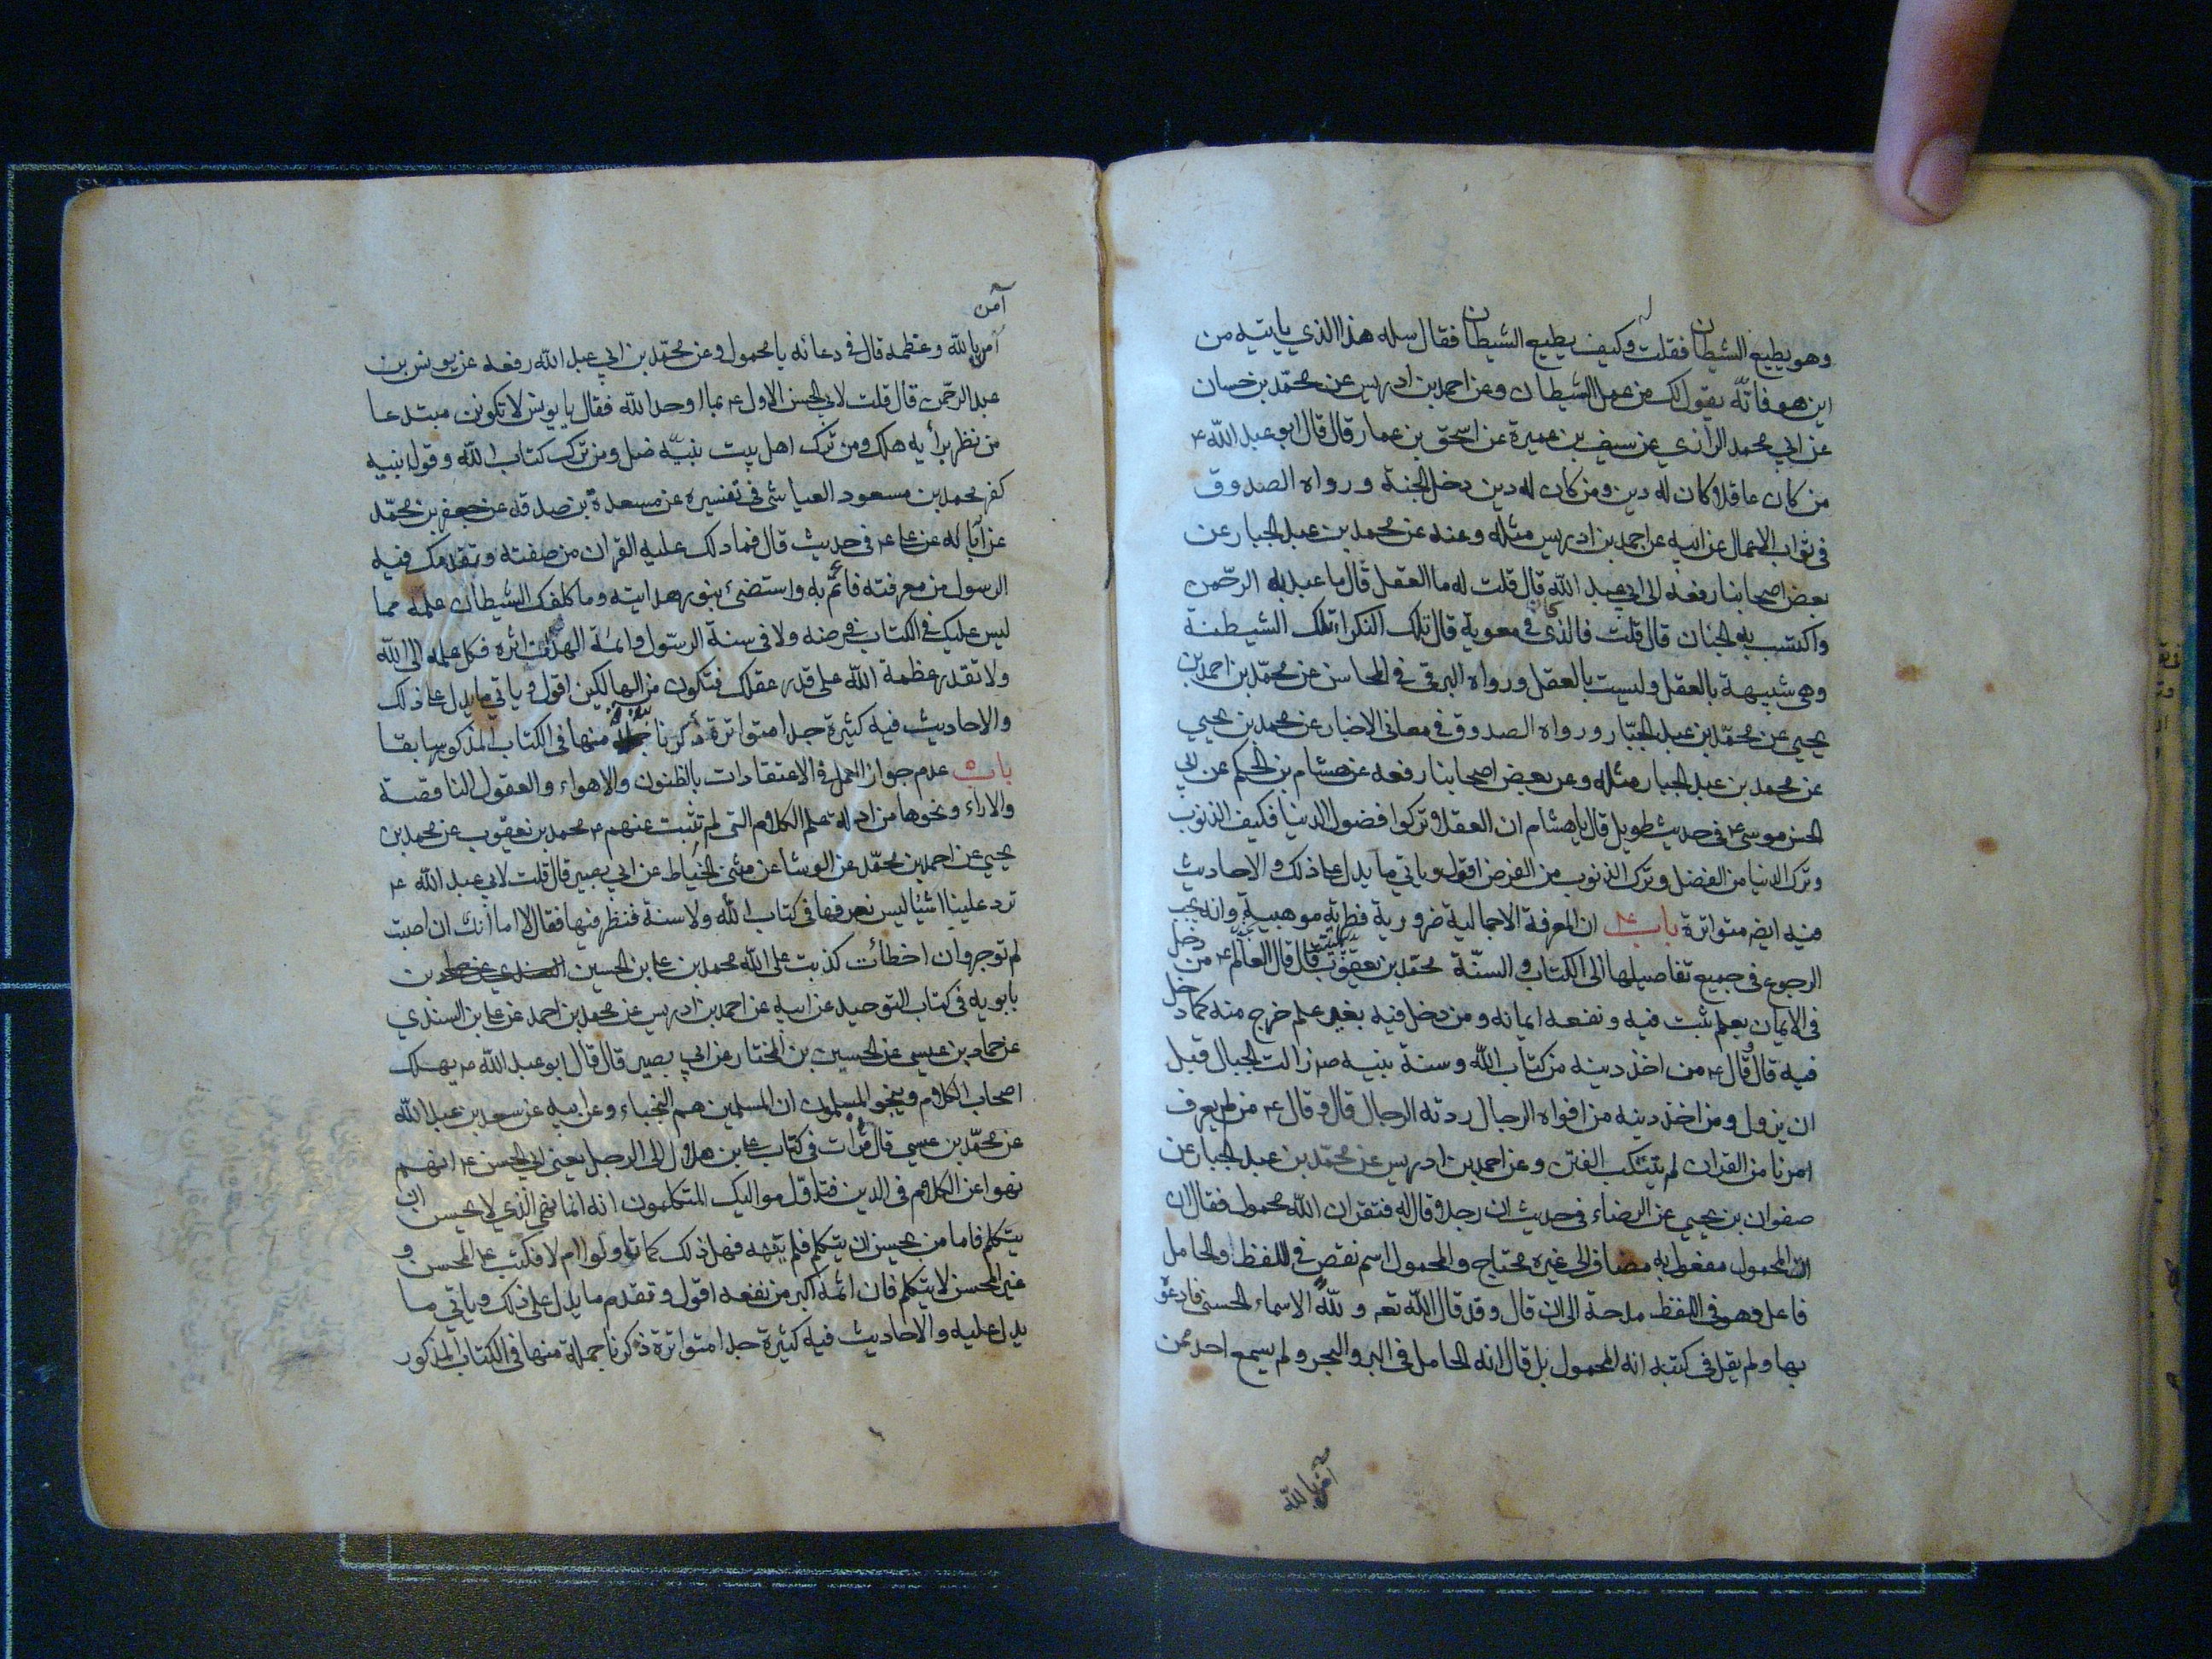 وهو يطيع الشيطان فقلت له وكيف يطيع الشيطان فقال سله هذا الذي ياتيه من
اين هو فانّه يقول لك من عمل الشيطان وعن احمد بن ادريس عن محمّد بن حسان
عن ابي محمد الرازي عن سيف بن عميرة عن اسحق بن عمار قال قال ابو عبد الله ع
من كان عاقلا كان له دين ومن كان له دين دخل الجنة ورواه الصدوق
في ثواب الاعمال عن ابيه عن احمد بن ادريس مثله وعنه عن محمد بن عبد الجبار عن
بعض اصحابنا رفعه الى ابي عبد الله قال قلت له ما العقل قال ما عبد به الرّحمن
واكتسب به الجنان قال قلت فالذي كان في معوية قال تلك النكراء تلك الشيطنة
وهي شبيهة بالعقل وليست بالعقل ورواه البرقي في المحاسن عن محمّد بن احمد بن
يحيي عن محمّد بن عبد الجبّار ورواه الصدوق في معاني الاخبار عن محمد بن يحيي
عن محمد بن عبد الجبار مثله وعن بعض اصحابنا رفعه عن هشام بن الحكم عن ابي
الحسن موسى ع في حديث طويل قال يا هشام ان العقلا تركوا فضول الدنيا فكيف الذنوب
وترك الدنيا من الفضل وترك الذنوب من الفرض اقول وياتي ما يدل على ذلك والاحاديث
فيه ايضا متواترة باب ٤ ان المعرفة الاجمالية ضرورية فطرية موهبية وانه يجب
الرجوع في جميع تفاصيلها الى الكتاب والسنّة محمّد بن يعقوب الكليني قال قال العالم ع من دخل
في الايمان بعلم ثبت فيه ونفعه ايمانه ومن دخل فيه بغير علم خرج منه كما دخل
فيه قال وقال ع من اخذ دينه من كتاب الله وسنة نبيه ص زالت الجبال قبل
ان يزول ومن اخذ دينه من افواه الرجال ردته الرجال قال وقال ع من لم يعرف
امرنا من القران لم يتنكب الفتن وعن احمد بن ادريس عن محمّد بن عبد الجبار عن
صفوان بن يحيي عن الرضاء في حديث ان رجلا قال له فتقر ان الله محمول فقال ان
المحمول مفعول به مضاف الى غيره محتاج والمحمول اسم نقص في اللفظ والحامل
فاعل وهو في اللفظ مدحة الى ان قال وقد قال الله تعه ولله الاسماء الحسنى فادعوه
بها ولم يقل في كتبه انه المحمول بل قال انه الحامل في البر والبحر ولم يسمع احد ممن
آمن بالله
آمن
آمن بالله وعظمه قال في دعائه يا محمول وعن محمّد بن ابي عبد الله رفعه عن يونس بن
عبد الرحمن قال قلت لابي الحسن الاول ع بما اوحد الله فقال يا يونس لا تكونن مبتدعا
من نظر برأيه هلك ومن ترك اهل بيت نبيّه ضل ومن ترك كتاب الله وقول نبيه
كفر محمد بن مسعود العياشي في تفسيره عن مسعدة بن صدقه عن جعفر بن محمّد
عن آبائه عن علي ع في حديث قال فما دلك عليه القران من صفته وتقدمك فيه
الرسول من معرفته فائتمّ به واستضئ بنور هدايته وما كلفك الشيطان علمه مما
ليس عليك في الكتاب فرضه ولا في سنة الرّسول وائمة الهدى اثره فكل علمه الى الله
ولا تقدر عظمة الله على قدر عقلك فتكون من الهالكين اقول وياتي ما يدل على ذلك
والاحاديث فيه كثيرة جدا متواترة ذكرنا نبذة منها في الكتاب المذكور سابقا
باب ٥ عدم جواز العمل في الاعتقادات بالظنون والاهواء والعقول الناقصة
والاراء ونحوها من ادلة علم الكلام التي لم تثبت عنهم ع محمد بن يعقوب عن محمد بن
يحيي عن احمد بن محمّد عن الوشا عن مثنى الخياط عن ابي بصير قال قلت لابي عبد الله ع
ترد علينا اشيا ليس نعرفها في كتاب الله ولا سنة فننظر فيها فقال لا اما انك ان اصبت
لم توجر وان اخطأت كذبت على الله محمد بن علي بن الحسين بن
بابويه في كتاب التوحيد عن ابيه عن احمد بن ادريس عن محمد بن احمد عن علي بن السندي
عن حماد بن عيسى عن الحسين بن المختار عن ابي بصير قال قال ابو عبد الله ع يهلك
اصحاب الكلام وينجو المسلمون ان المسلمين هم النجباء وعن ابيه عن سعد بن عبد الله
عن محمّد بن عيسى قال قرات في كتاب علي بن هلال الى الرجل يعني ابي الحسن ع انهم
نهوا عن الكلام في الدين فتاوّل مواليك المتكلمون انه انما نهي الذي لا يحسن ان
يتكلم فاما من يحسن ان يتكلم فلم ينهه فهل ذلك كما تاولوا ام لا فكتب ع المحسن و
غير المحسن لا يتكلم فان اثمه اكبر من نفعه اقول وتقدم ما يدل على ذلك وياتي ما
يدل عليه والاحاديث فيه كثيرة جدا متواترة ذكرنا جملة منها في الكتاب المذكور